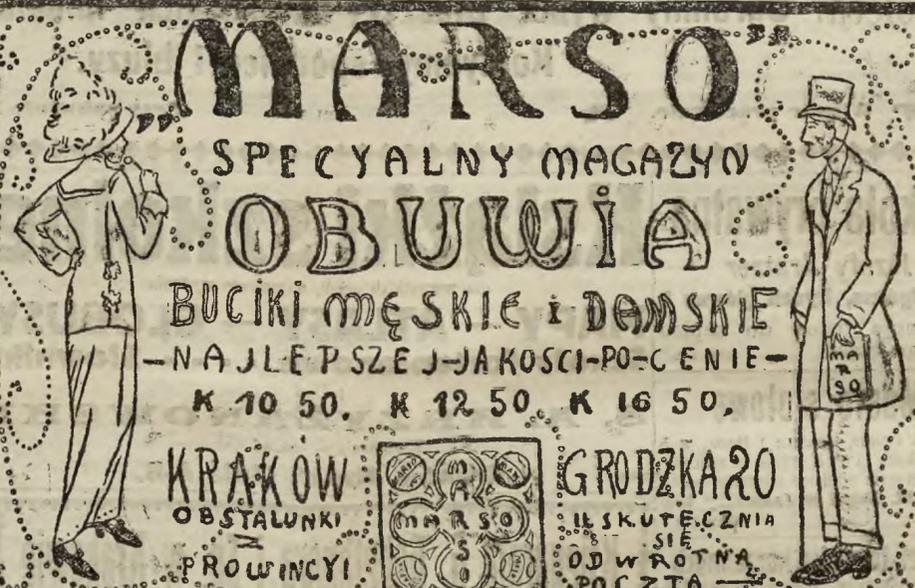 „MARSO”
SPECYALNY MAGAZYN
OBUWIA
BUCIKI MĘSKIE i DAMSKIE
-NAJLEPSZEJ-JAKOSCI-PO-CENIE-
K 10 50. K 12 50. K 16 50.
MARSO
KRAKÓW
OBSTALUNKI
Z
PROWINCYI
MARSO
MARSO
GRODZKA 20
USKUTECZNIA
SIĘ
ODWROTNĄ
POCZTĄ